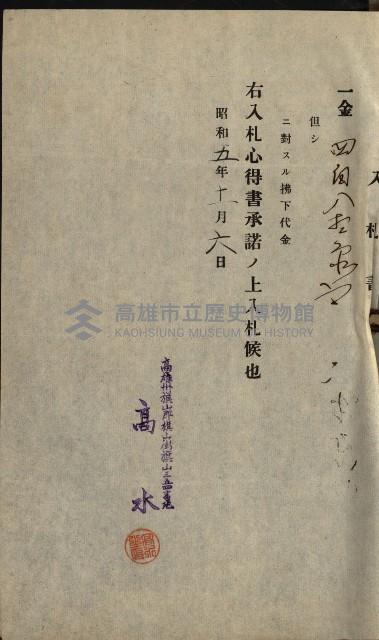 入札書
一金 四百八拾
但シ
ニ對スル拂下代金
右入札心得書承諾ノ上入札候也
昭和五年十一月六日
高雄州旗山郡旗山街旗山三
高水
高雄市立歷史博物館
KAOHSIUNG MUSEUM OF HISTORY